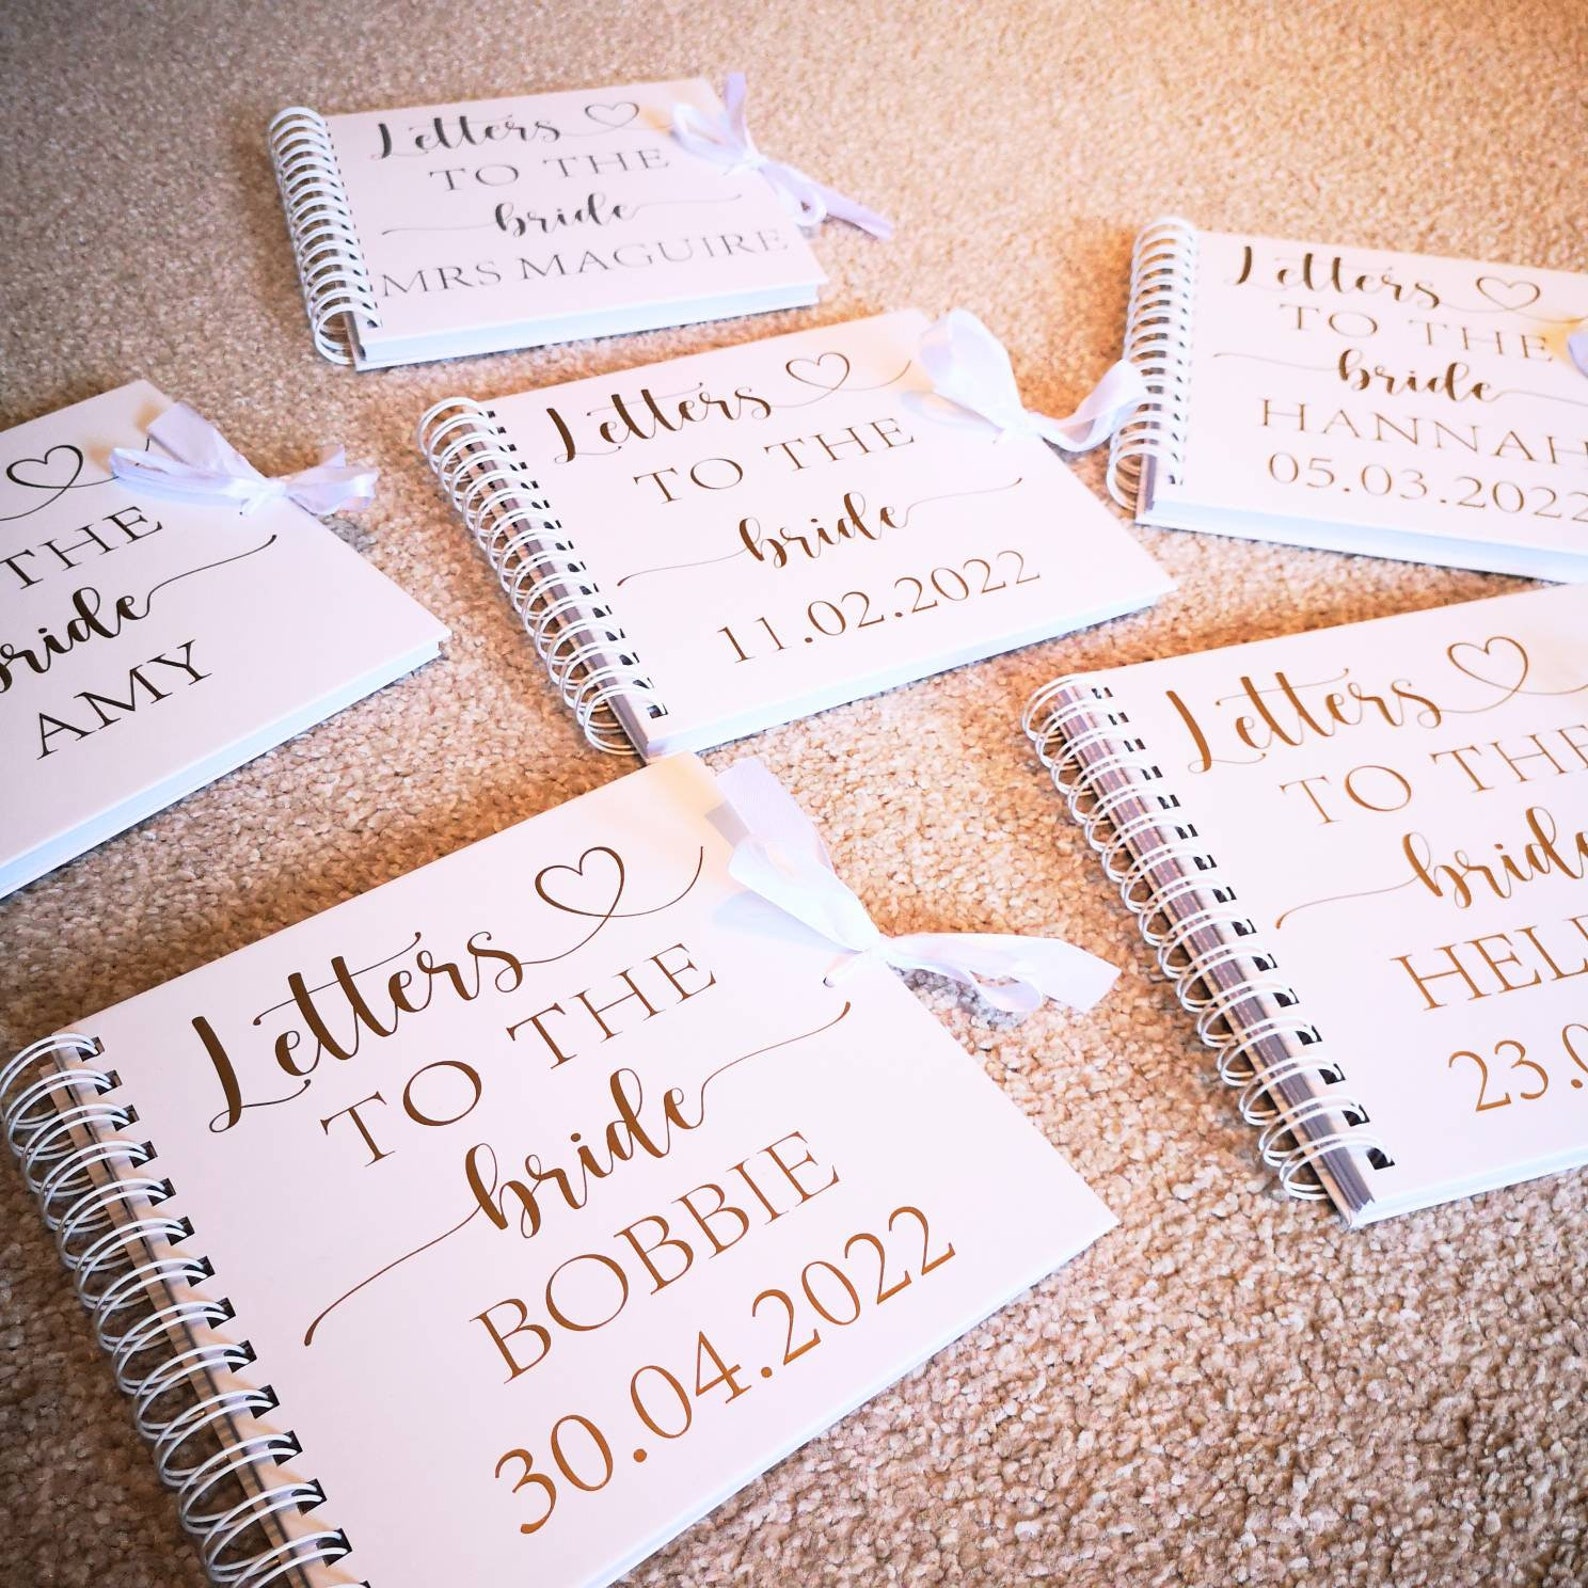 Letters
TO THE
bride
MRS MAGUIRE
Letters
TO THE
bride
HANNAH
05.03.2022
Letters
TO THE
bride
11.02.2022
THE
bride
AMY
Letters
TO THE
bride
HEL
23.0
Letters
TO THE
bride
BOBBIE
30.04.2022